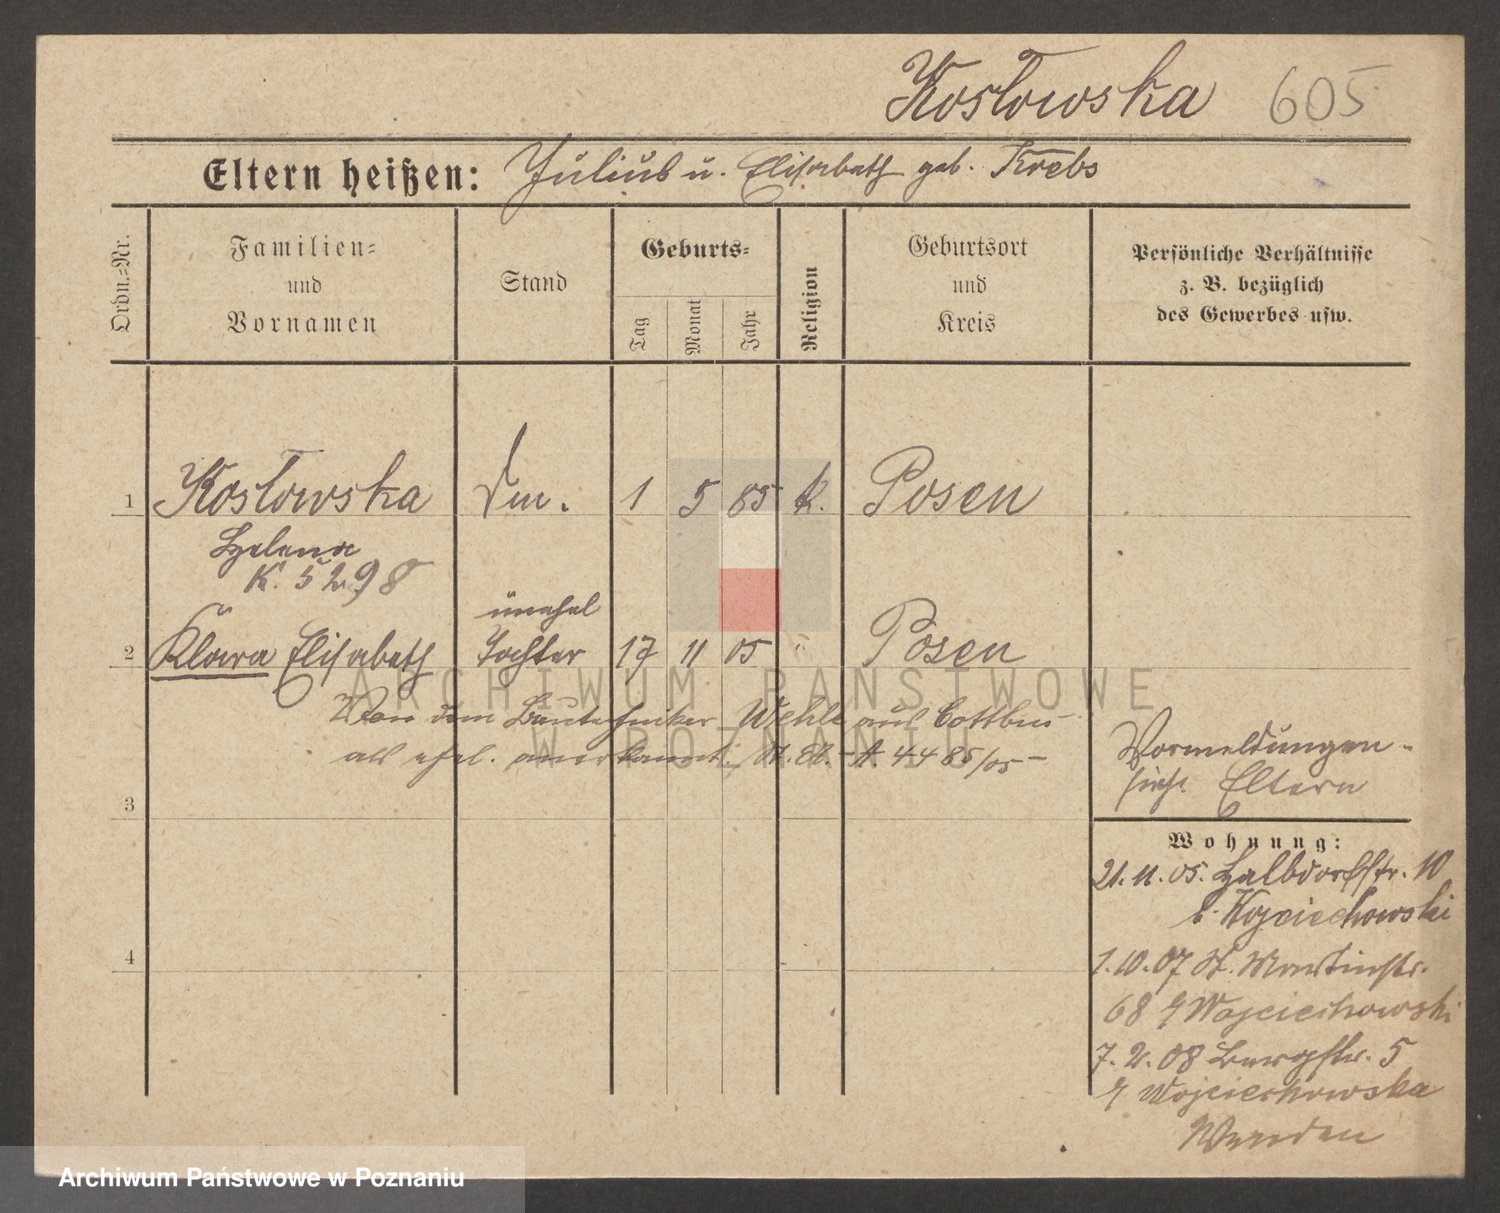 Kosłowska 605
Eltern heißen: Julius u. Elisabeth geb. Krebs
Ordn.-Nr.
Familien-
und
Vornamen
Stand
Geburts-
Tag
Monat
Jahr
Religion
Geburtsort
und
Kreis
Persönliche Verhältnisse
z. B. bezüglich
des Gewerbes usw.
1 Kosłowska 1 5 85 k. Posen
Helena
K. 5298
unehel
2 Klara Elisabeth Tochter 17 11 05 " Posen
Von dem Bautechniker Wehle aus Cottbus
als ehel. anerkannt. St. A. 4485/05
Vormeldungen
siehe Eltern
3
Wohnung:
21.11.05. Halbdorfstr. 10
b. Wojciechowski
4
1.10.07 St. Martinstr.
68 Wojciechowski
7.2.08 Burgstr. 5
Wojciechowska
ARCHIWUM PAŃSTWOWE
W POZNANIU
Archiwum Państwowe w Poznaniu